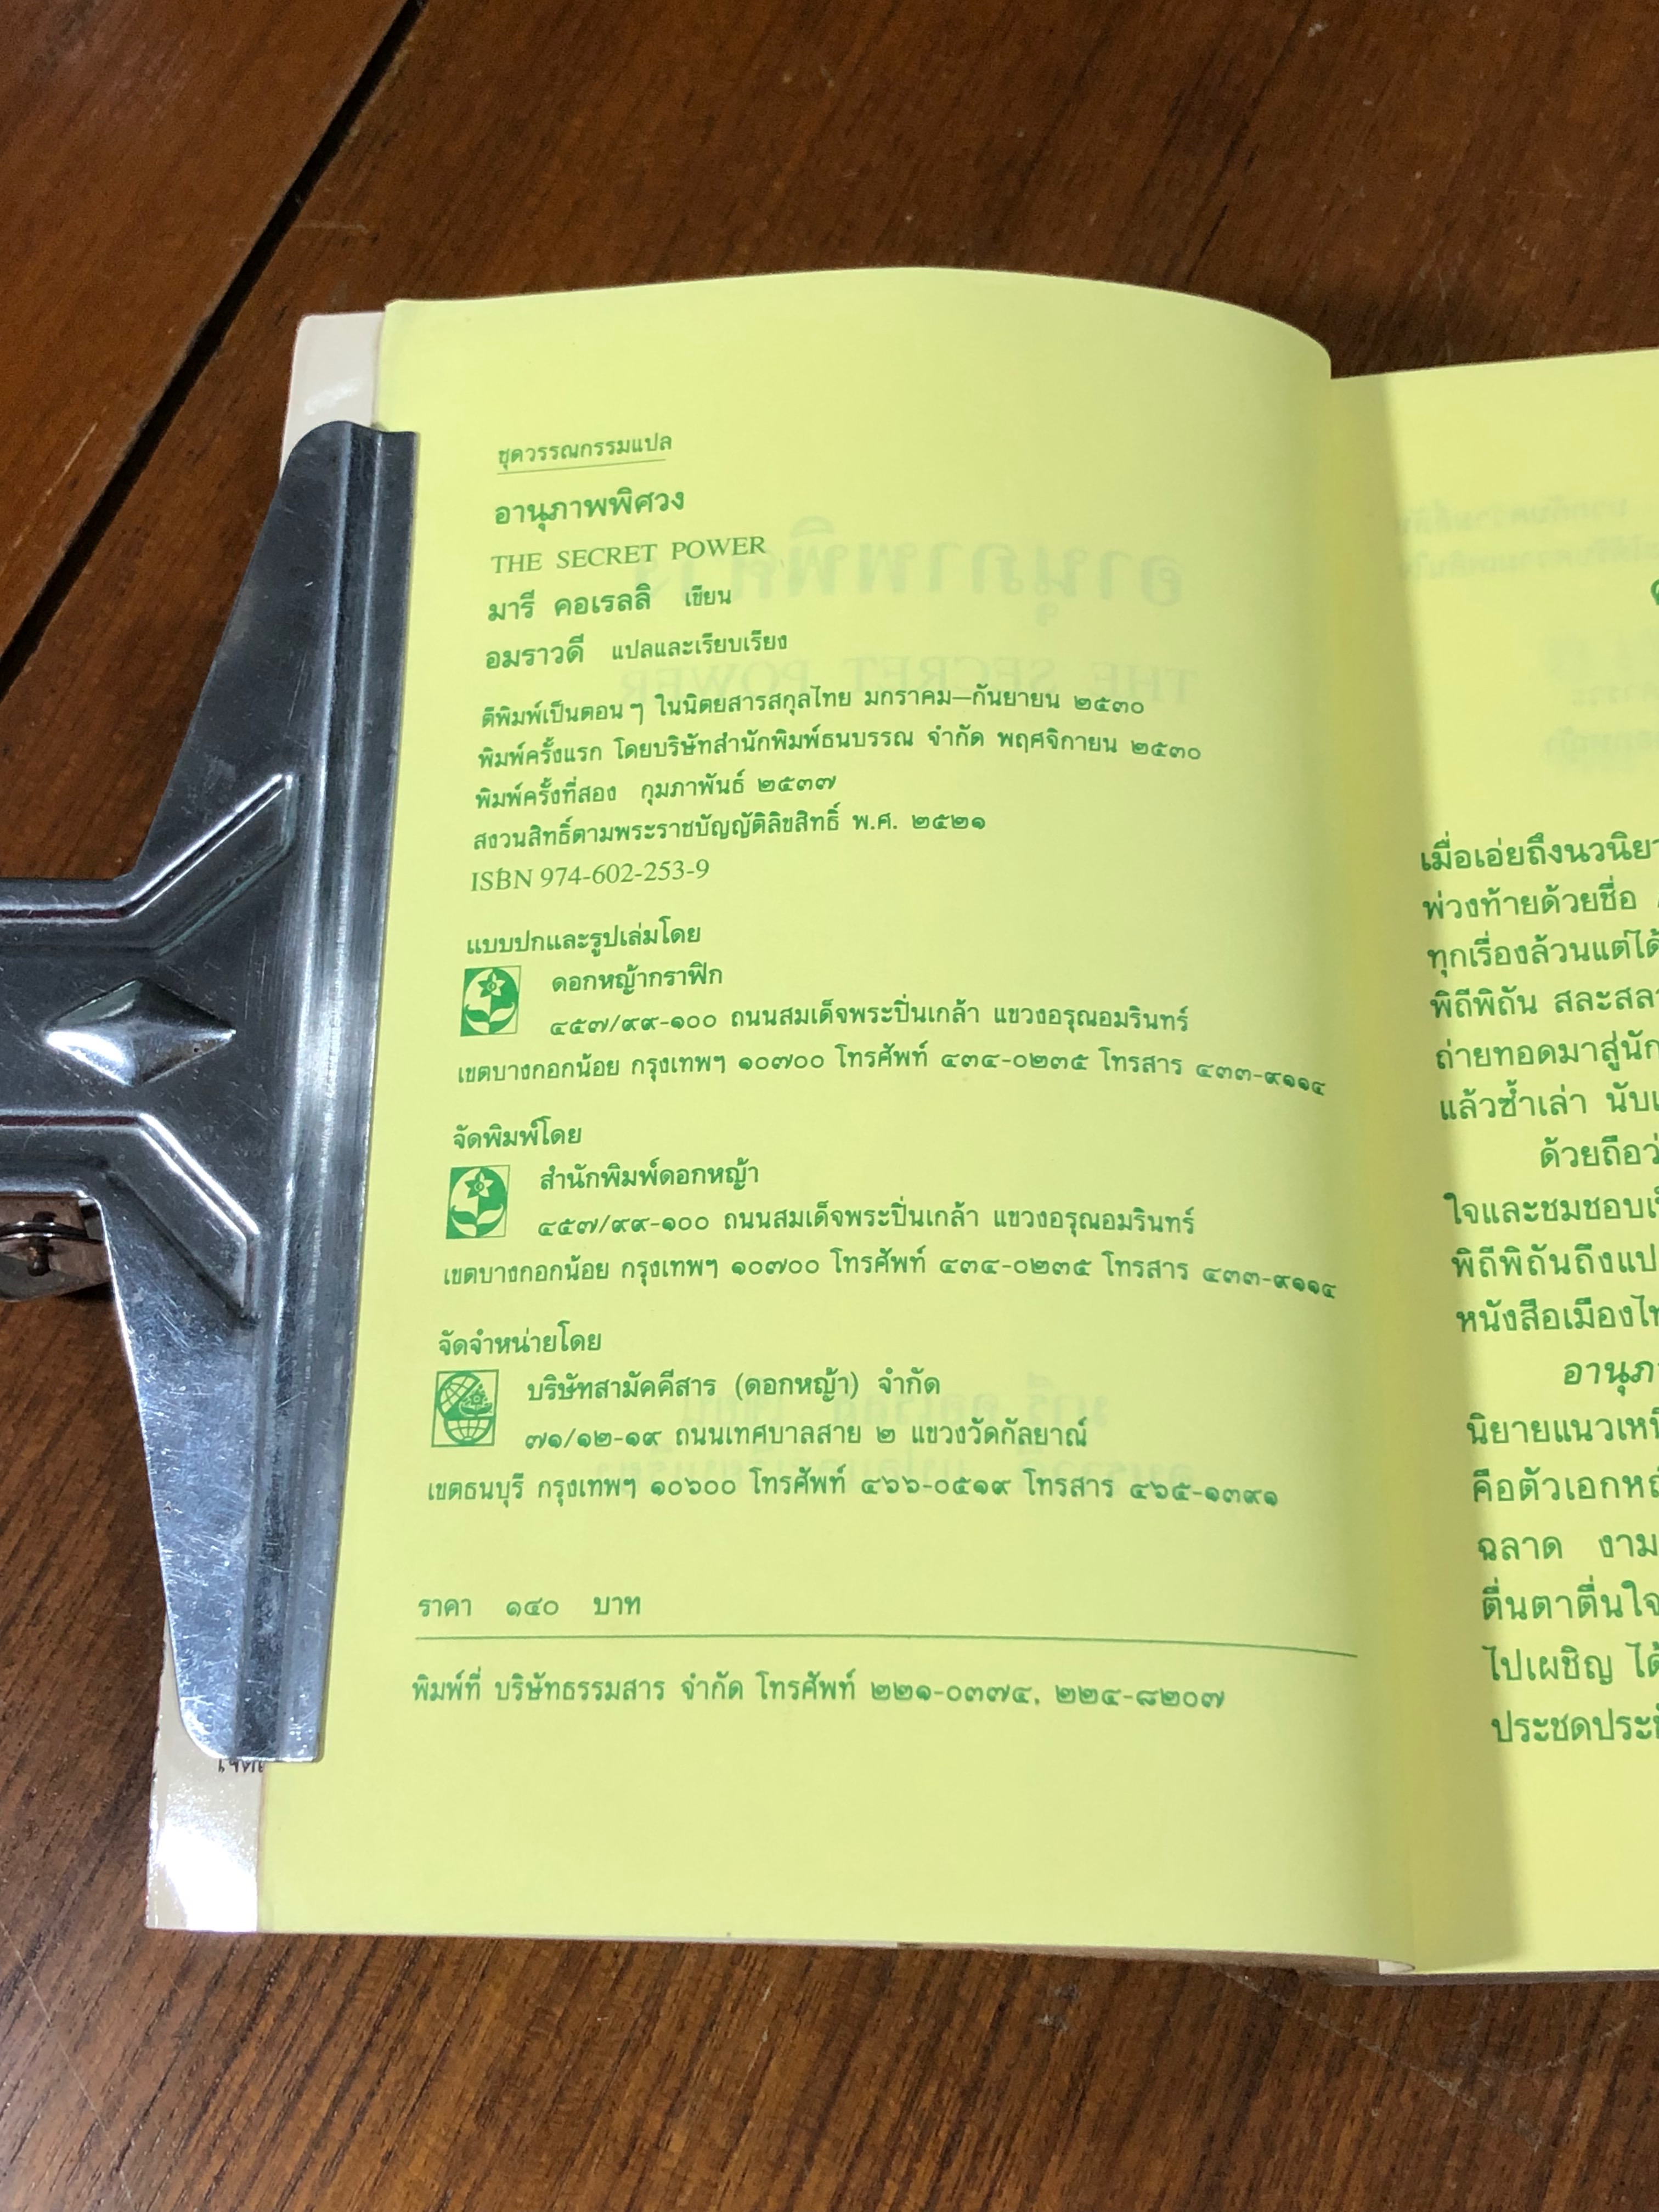 ชุดวรรณกรรมแปล
อานุภาพพิศวง
THE SECRET POWER
มารี คอเรลลิ เขียน
อมราวดี แปลและเรียบเรียง
ตีพิมพ์เป็นตอน ๆ ในนิตยสารสกุลไทย มกราคม—กันยายน ๒๕๓๐
พิมพ์ครั้งแรก โดยบริษัทสำนักพิมพ์ธนบรรณ จำกัด พฤศจิกายน ๒๕๓๐
พิมพ์ครั้งที่สอง กุมภาพันธ์ ๒๕๓๗
สงวนสิทธิ์ตามพระราชบัญญัติลิขสิทธิ์ พ.ศ. ๒๕๒๑
ISBN 974-602-253-9
แบบปกและรูปเล่มโดย
ดอกหญ้ากราฟิก
๔๕๗/๙๙-๑๐๐ ถนนสมเด็จพระปิ่นเกล้า แขวงอรุณอมรินทร์
เขตบางกอกน้อย กรุงเทพฯ ๑๐๗๐๐ โทรศัพท์ ๔๓๔-๐๒๓๕ โทรสาร ๔๓๓-๙๑๑๔
จัดพิมพ์โดย
สำนักพิมพ์ดอกหญ้า
๔๕๗/๙๙-๑๐๐ ถนนสมเด็จพระปิ่นเกล้า แขวงอรุณอมรินทร์
เขตบางกอกน้อย กรุงเทพฯ ๑๐๗๐๐ โทรศัพท์ ๔๓๔-๐๒๓๕ โทรสาร ๔๓๓-๙๑๑๔
จัดจำหน่ายโดย
บริษัทสามัคคีสาร (ดอกหญ้า) จำกัด
๗๑/๑๒-๑๙ ถนนเทศบาลสาย ๒ แขวงวัดกัลยาณ์
เขตธนบุรี กรุงเทพฯ ๑๐๖๐๐ โทรศัพท์ ๔๖๖-๐๕๑๙ โทรสาร ๔๖๕-๑๓๙๑
ราคา ๑๔๐ บาท
พิมพ์ที่ บริษัทธรรมสาร จำกัด โทรศัพท์ ๒๒๑-๐๓๗๔, ๒๒๔-๘๒๐๗
เมื่อเอ่ยถึงนวนิยา
พ่วงท้ายด้วยชื่อ
ทุกเรื่องล้วนแต่ได้
พิถีพิถัน สละสลว
ถ่ายทอดมาสู่นัก
แล้วซ้ำเล่า นับเ
ด้วยถือว
ใจและชมชอบเป็
พิถีพิถันถึงแป
หนังสือเมืองไท
อานุภา
นิยายแนวเหนื
คือตัวเอกหญ
ฉลาด งาม
ตื่นตาตื่นใจ
ไปเผชิญ ได้
ประชดประชั